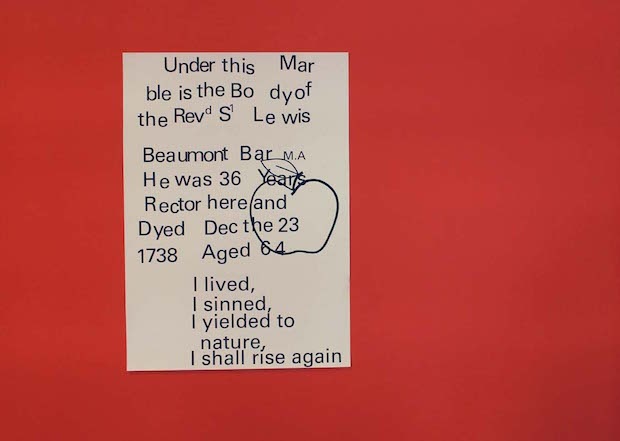 Under this Mar
ble is the Bo dy of
the Revᵈ S¹ Le wis
Beaumont Bar M.A
He was 36 Years
Rector here and
Dyed Dec the 23
1738 Aged 64
I lived,
I sinned,
I yielded to
nature,
I shall rise again